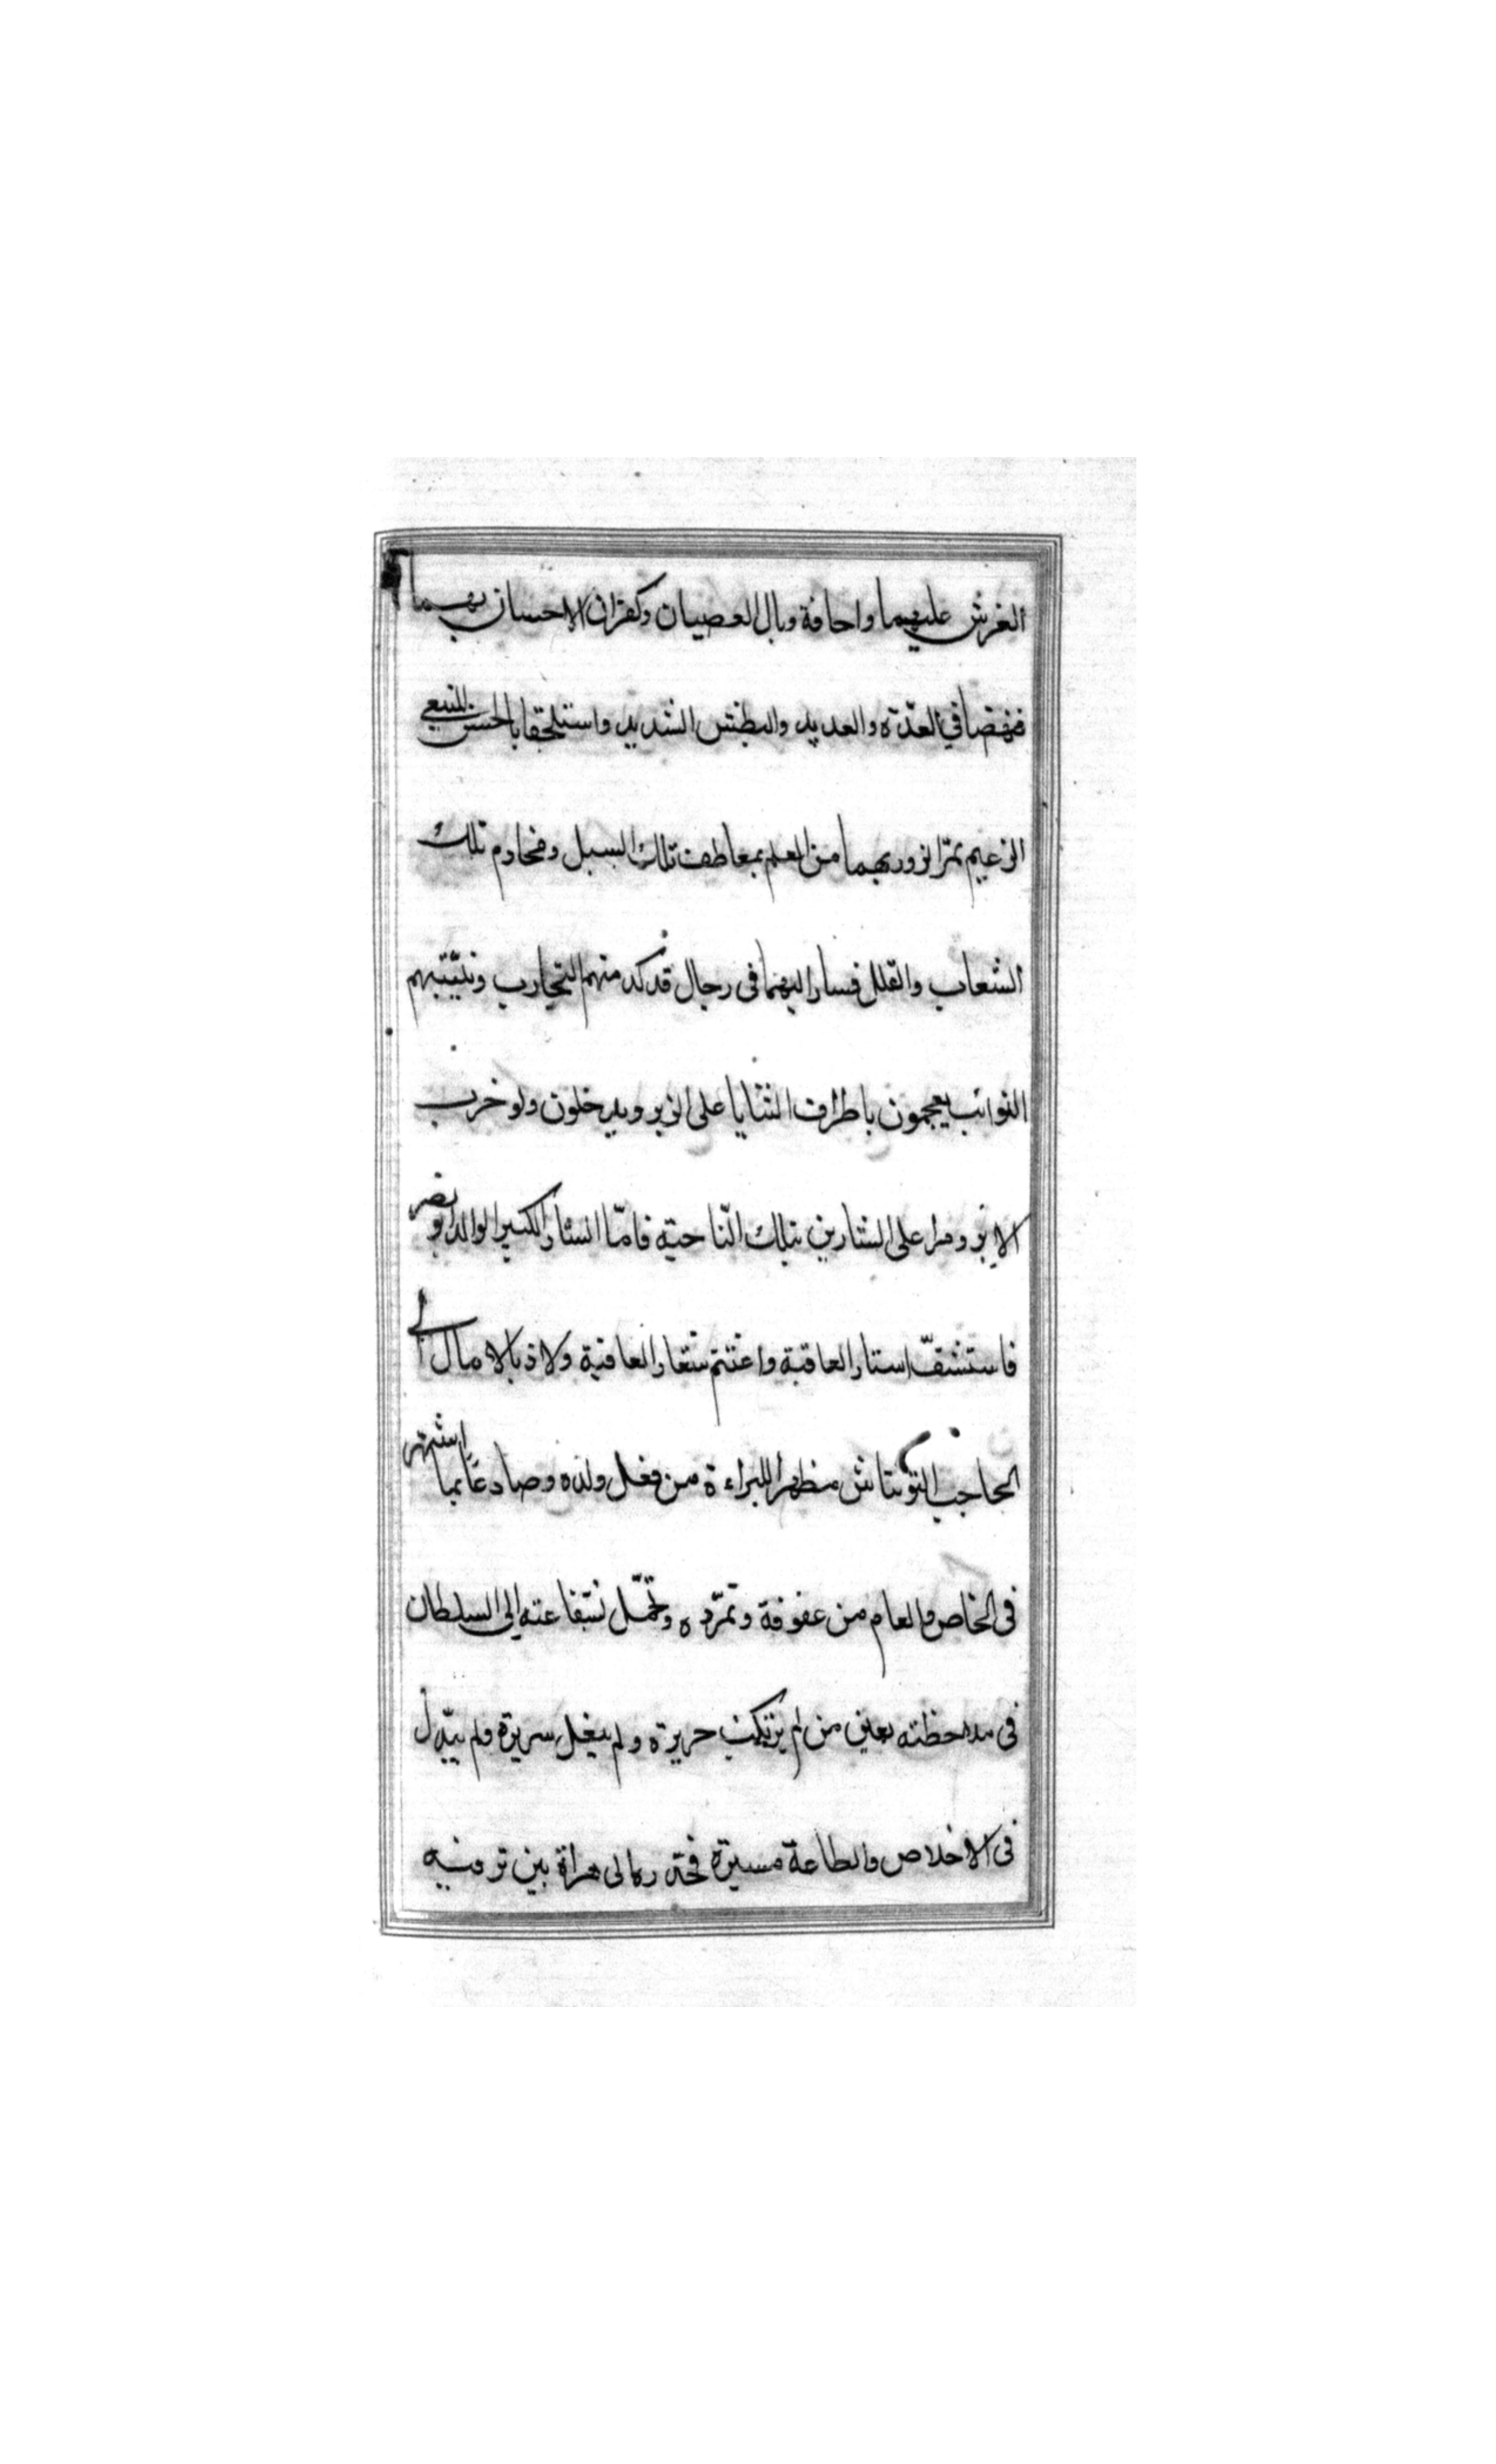 الغرش عليهما واحافة وبال العصيان وكفران الاحسان بهما
فنهضا في العدّة والعديد والبطش الشديد واستلحقا بالحسن المنيعي
الزعيم بمرّ الرور بهما من العلم بمعاطف تلك السبل ومخارم تلك
الشعاب والقلل فسار اليهما فى رجال قد كد منهم التجارب ونيّبتهم
النوائب يعجمون باطراف الثنايا على الزبر ويدخلون ولو خرت
الابر ومرا على الشارين بتلك النّاحية فامّا الشار الكبير الوالد ابو نصر
فاستشفّ استار العاقبة واغتنم شعار العافية ولاذ بالامان الى
الحاجب التونتاش مظهرا للبراءة من فعل ولده وصادعًا بما اشتهر
فى الخاص والعام من عقوقة وتمرّده وتحمّل بشفاعته الى السلطان
فى ملاحظته بعين من لم يرتكب جريرة ولم يغل سريرة ولم يبدّل
فى الاخلاص والطاعة مسيرة فحتدرها الى هراة بين ترفيه